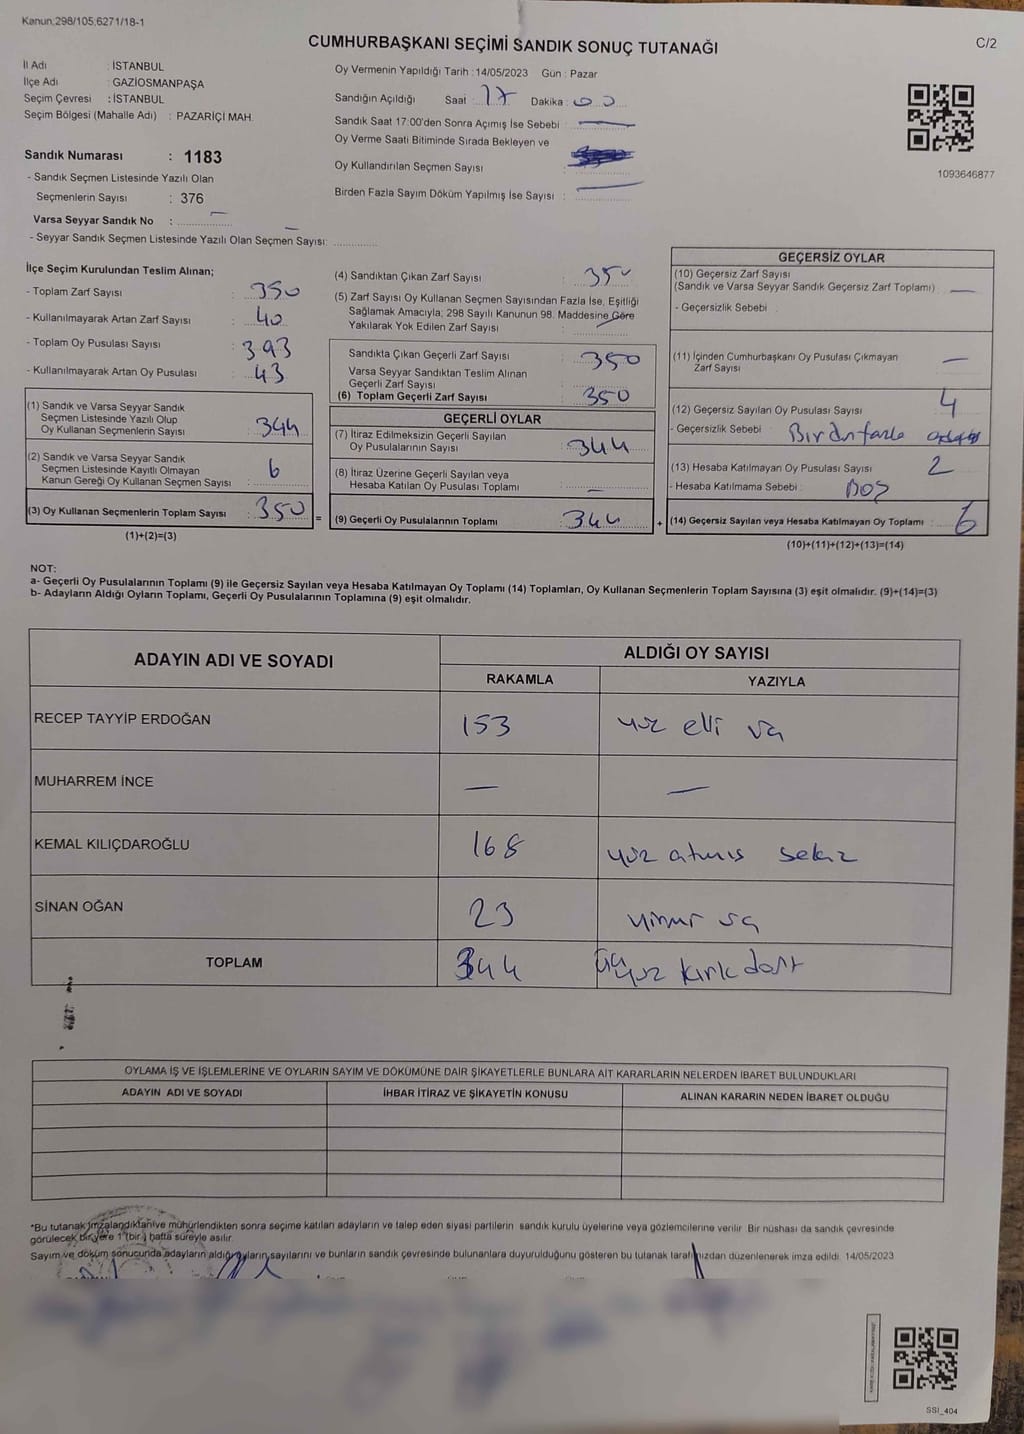 Kanun.298/105,6271/18-1
CUMHURBAŞKANI SEÇİMİ SANDIK SONUÇ TUTANAĞI
C/2
İl Adı : İSTANBUL
İlçe Adı : GAZİOSMANPAŞA
Seçim Çevresi : İSTANBUL
Seçim Bölgesi (Mahalle Adı) : PAZARİÇİ MAH.
Sandık Numarası : 1183
- Sandık Seçmen Listesinde Yazılı Olan
Seçmenlerin Sayısı : 376
Varsa Seyyar Sandık No : —
- Seyyar Sandık Seçmen Listesinde Yazılı Olan Seçmen Sayısı: —
Oy Vermenin Yapıldığı Tarih : 14/05/2023 Gün : Pazar
Sandığın Açıldığı Saat : 17 Dakika : 00
Sandık Saat 17.00'den Sonra Açımış İse Sebebi : —
Oy Verme Saati Bitiminde Sırada Bekleyen ve
Oy Kullandırılan Seçmen Sayısı :
Birden Fazla Sayım Döküm Yapılmış İse Sayısı : —
1093646877
İlçe Seçim Kurulundan Teslim Alınan;
- Toplam Zarf Sayısı : 350
- Kullanılmayarak Artan Zarf Sayısı : 40
- Toplam Oy Pusulası Sayısı : 393
- Kullanılmayarak Artan Oy Pusulası : 43
(1) Sandık ve Varsa Seyyar Sandık
Seçmen Listesinde Yazılı Olup
Oy Kullanan Seçmenlerin Sayısı : 344
(2) Sandık ve Varsa Seyyar Sandık
Seçmen Listesinde Kayıtlı Olmayan
Kanun Gereği Oy Kullanan Seçmen Sayısı : 6
(3) Oy Kullanan Seçmenlerin Toplam Sayısı : 350 =
(1)+(2)=(3)
(4) Sandıktan Çıkan Zarf Sayısı : 350
(5) Zarf Sayısı Oy Kullanan Seçmen Sayısından Fazla İse, Eşitliği
Sağlamak Amacıyla; 298 Sayılı Kanunun 98. Maddesine Göre
Yakılarak Yok Edilen Zarf Sayısı : —
Sandıkta Çıkan Geçerli Zarf Sayısı : 350
Varsa Seyyar Sandıktan Teslim Alınan
Geçerli Zarf Sayısı :
(6) Toplam Geçerli Zarf Sayısı : 350
GEÇERLİ OYLAR
(7) İtiraz Edilmeksizin Geçerli Sayılan
Oy Pusulalarının Sayısı : 344
(8) İtiraz Üzerine Geçerli Sayılan veya
Hesaba Katılan Oy Pusulası Toplamı : —
(9) Geçerli Oy Pusulalarının Toplamı : 344 +
GEÇERSİZ OYLAR
(10) Geçersiz Zarf Sayısı
(Sandık ve Varsa Seyyar Sandık Geçersiz Zarf Toplamı) : —
- Geçersizlik Sebebi :
(11) İçinden Cumhurbaşkanı Oy Pusulası Çıkmayan
Zarf Sayısı : —
(12) Geçersiz Sayılan Oy Pusulası Sayısı : 4
- Geçersizlik Sebebi : Birden fazla
(13) Hesaba Katılmayan Oy Pusulası Sayısı : 2
- Hesaba Katılmama Sebebi : Boş
(14) Geçersiz Sayılan veya Hesaba Katılmayan Oy Toplamı : 6
(10)+(11)+(12)+(13)=(14)
NOT:
a- Geçerli Oy Pusulalarının Toplamı (9) ile Geçersiz Sayılan veya Hesaba Katılmayan Oy Toplamı (14) Toplamları, Oy Kullanan Seçmenlerin Toplam Sayısına (3) eşit olmalıdır. (9)+(14)=(3)
b- Adayların Aldığı Oyların Toplamı, Geçerli Oy Pusulalarının Toplamına (9) eşit olmalıdır.
ADAYIN ADI VE SOYADI
ALDIĞI OY SAYISI
RAKAMLA
YAZIYLA
RECEP TAYYİP ERDOĞAN 153 yüz elli üç
MUHARREM İNCE — —
KEMAL KILIÇDAROĞLU 168 yüz atmış sekiz
SİNAN OĞAN 23 yirmi üç
TOPLAM 344 üçyüz kırk dört
OYLAMA İŞ VE İŞLEMLERİNE VE OYLARIN SAYIM VE DÖKÜMÜNE DAİR ŞİKAYETLERLE BUNLARA AİT KARARLARIN NELERDEN İBARET BULUNDUKLARI
ADAYIN ADI VE SOYADI
İHBAR İTİRAZ VE ŞİKAYETİN KONUSU
ALINAN KARARIN NEDEN İBARET OLDUĞU
*Bu tutanak imzalandıktan ve mühürlendikten sonra seçime katılan adayların ve talep eden siyasi partilerin sandık kurulu üyelerine veya gözlemcilerine verilir. Bir nüshası da sandık çevresinde
görülecek bir yere 1 (bir) hafta süreyle asılır.
Sayım ve döküm sonucunda adayların aldığı oyların sayılarını ve bunların sandık çevresinde bulunanlara duyurulduğunu gösteren bu tutanak tarafımızdan düzenlenerek imza edildi. 14/05/2023
SSI_404